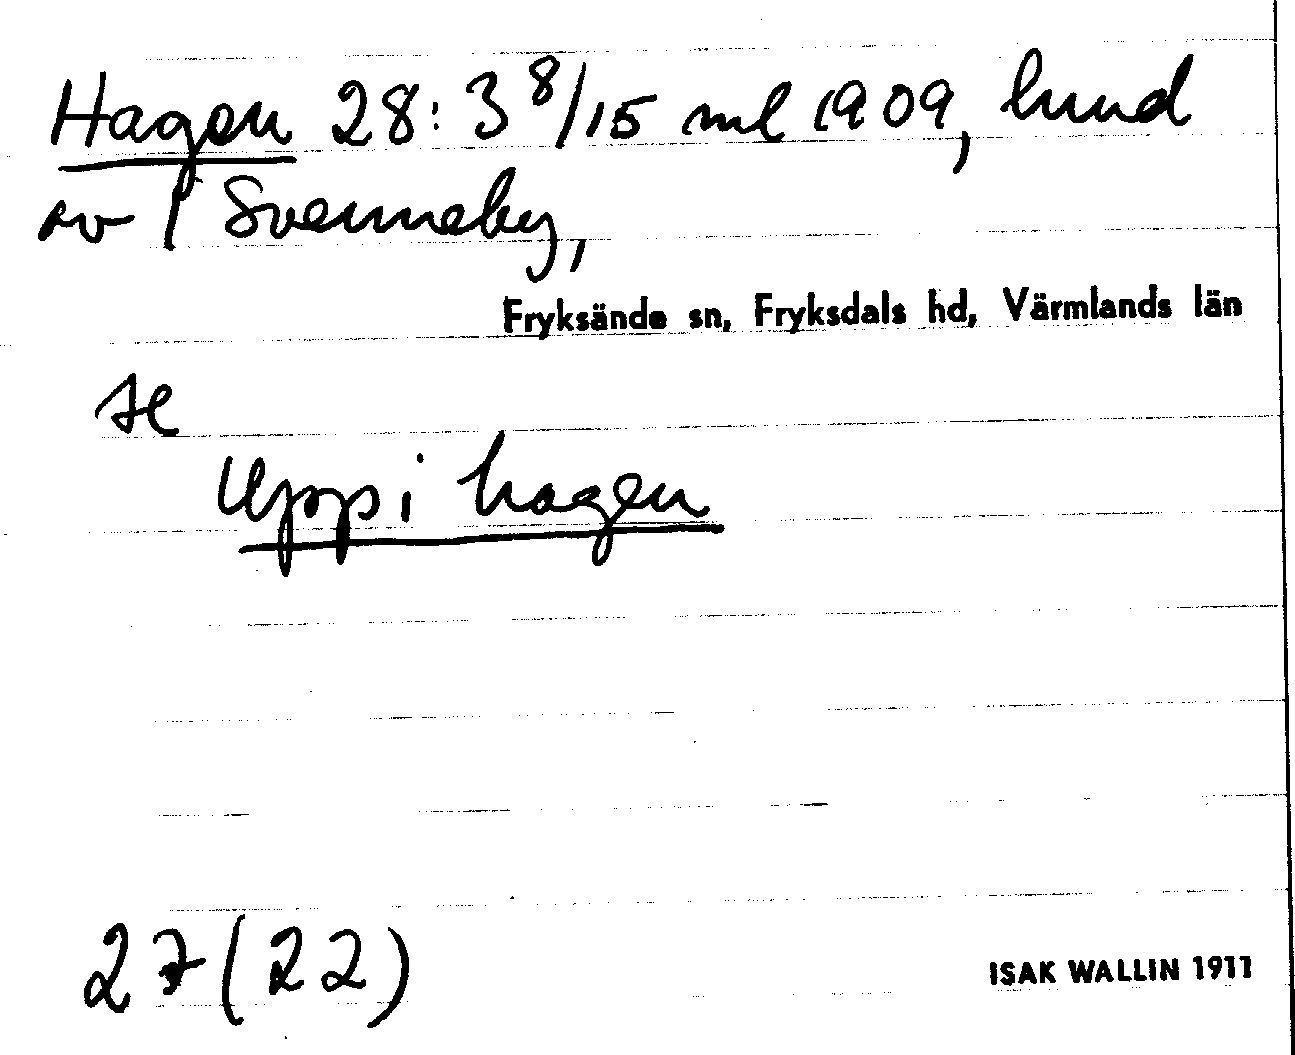 Hagen 28:3 8/15 ml 1909, hmd
av 1 Svenneby,
Fryksände sn, Fryksdals hd, Värmlands län
se
Uppi hagen
27(22)
ISAK WALLIN 1911